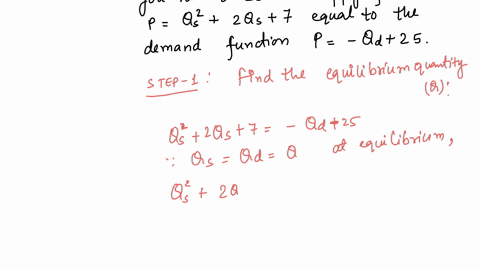 P = Qs² + 2Qs + 7 equal to the
demand function P = - Qd + 25.
STEP-1 : Find the equilibrium quantity
(Q):
Qs² + 2Qs + 7 = - Qd + 25
∵ Qs = Qd = Q at equilibrium,
Qs² + 2Q